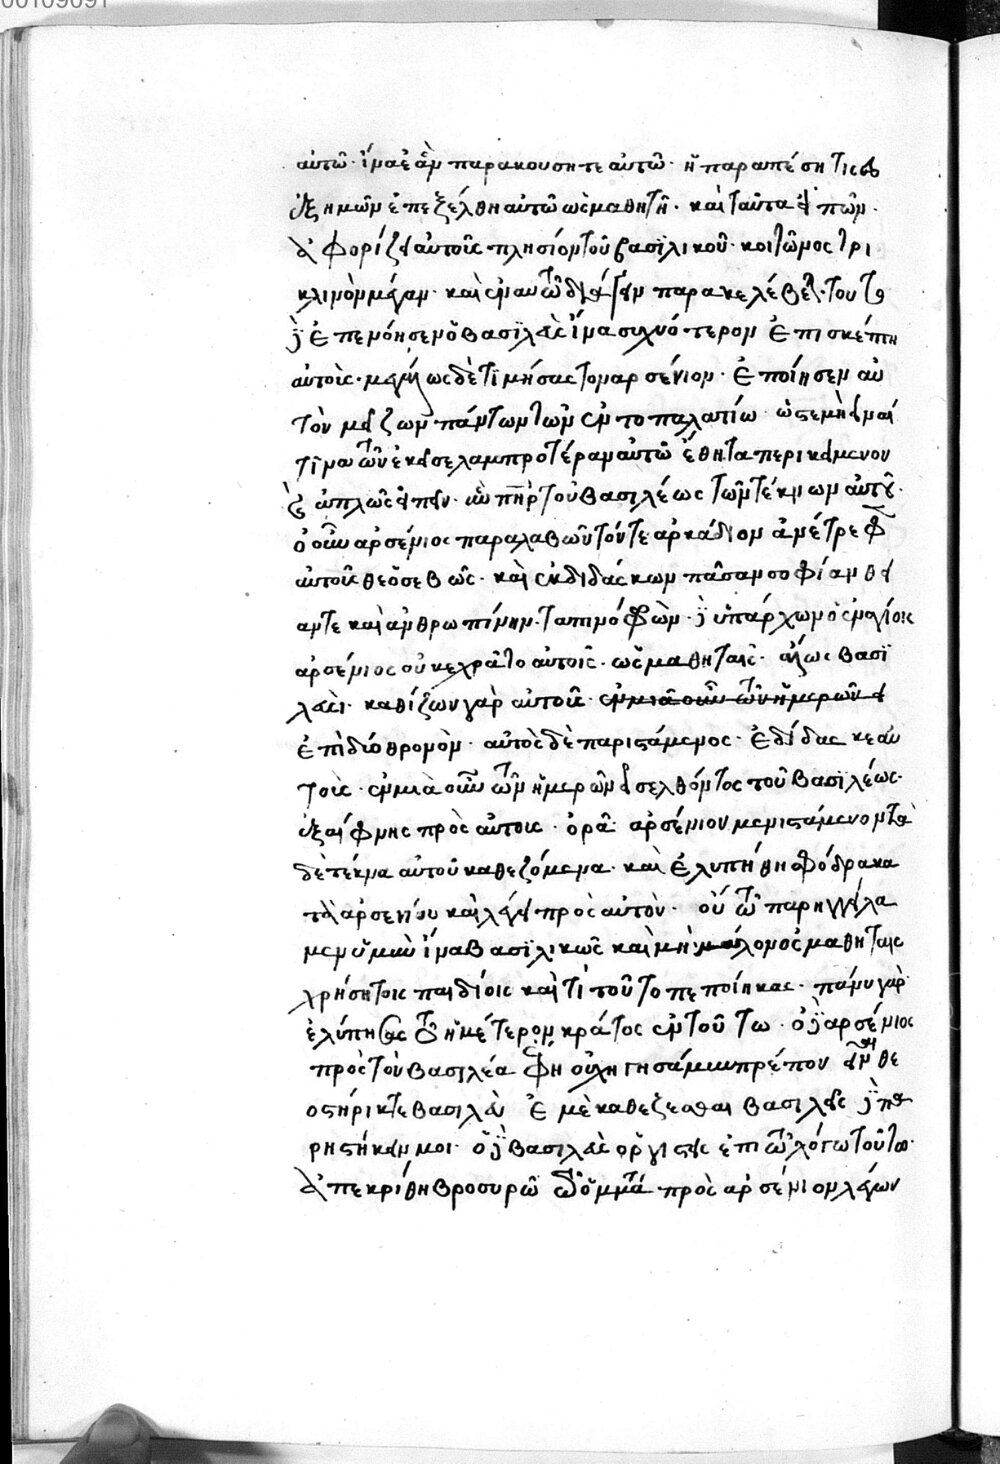 00109091
αὐτῶ· ἵνα ἐὰν παρακούσητε αὐτῶ· ἢ παραπέση τις
ἐξ ἡμῶν ἐπεξέλθη αὐτῶ ὡς μαθητῆ· καὶ ταῦτα εἰπὼν·
ἀφορίζει αὐτοῖς πλησίον τοῦ βασιλικοῦ κοιτῶνος τρι
κλινον μέγαν· καὶ ἐν αὐτῶ παρακελέβει· τουτο
ἐπενόησεν ὁ βασϊλεὺς ἵνα συχνότερον ἐπισκέπτη
αὐτοῖς· μεγάλως δὲ τϊμήσας τον αρσένιον· ἐποίησεν αὐ
τὸν μείζων πάντων τῶν ἐν το παλατίω· ὥστε μὴ εἶναί
τϊνα τῶν ἐκεῖσε λαμπροτέραν αὐτοῦ ἐθῆτα περικείμενον
ἁπλῶς εἰπεῖν· πηρ τοῦ βασιλέως τῶν τέκνων αὐτοῦ·
ὁ οὖν αρσένιος παραλαβὼν τόν τε αρκάδιον ἀνέτρεφεν
αὐτοῖς θεοσεβῶς· καὶ ἐκδιδάσκων πᾶσαν σοφίαν θεί
αν τε καὶ ἀνθρωπίνην· ταπινόφρων ὑπάρχων ὁ
αρσένιος οὐκ ἐχρᾶτο αὐτοῖς· ὡς μαθηταῖς· ἀλλ' ὡς βασϊ
λεῦσι· καθίζων γὰρ αὐτοῖς ἐν μιᾶ οὖν τῶν ἡμερῶν εἰ
ἐπὶ διόθρονον· αὐτὸς δὲ παριστάμενος· ἐδίδασκε αὐ
τοῖς· ἐν μιὰ οὖν τῶν ἡμερῶν εἰσελθόντος τοῦ βασϊλέως·
ἐξαίφνης πρὸς αὐτοις· ὁρᾶ αρσένιον μενιστάμενον τὰ
δὲ τέκνα αὐτοῦ καθεζόμενα· καὶ ἐλυπήθη σφόδρα κα
τὰ αρσενίου καὶ λέγει πρὸς αὐτὸν· οὐ παρηγγείλα
μεν ὑμῖν ἵνα βασϊλικῶς καὶ μὴ μαθηταῖς
χρήση τοις παιδίοις καὶ τί τοῦτο πεποίηκας· πάνυ γὰρ
ἐλύπησας τὸ ἡμέτερον κράτος ἐν τοῦτω· ὁ δὲ αρσένιος
πρὸς τὸν βασιλέα ἔφη οὐχὶ πρέπον
οστήρικτε βασιλεῦ ἐμὲ καθέζεσθαι βασιλεῖς δὲ πα
ρηστήκειν μοι· ὁ δὲ βασιλεὺς ὀργισθεὶς ἐπὶ τῶ λόγω τοῦτω·
ἀπεκρίθη βροσυρῶ τῶ ὄμματι πρὸς αρσένιον λέγων